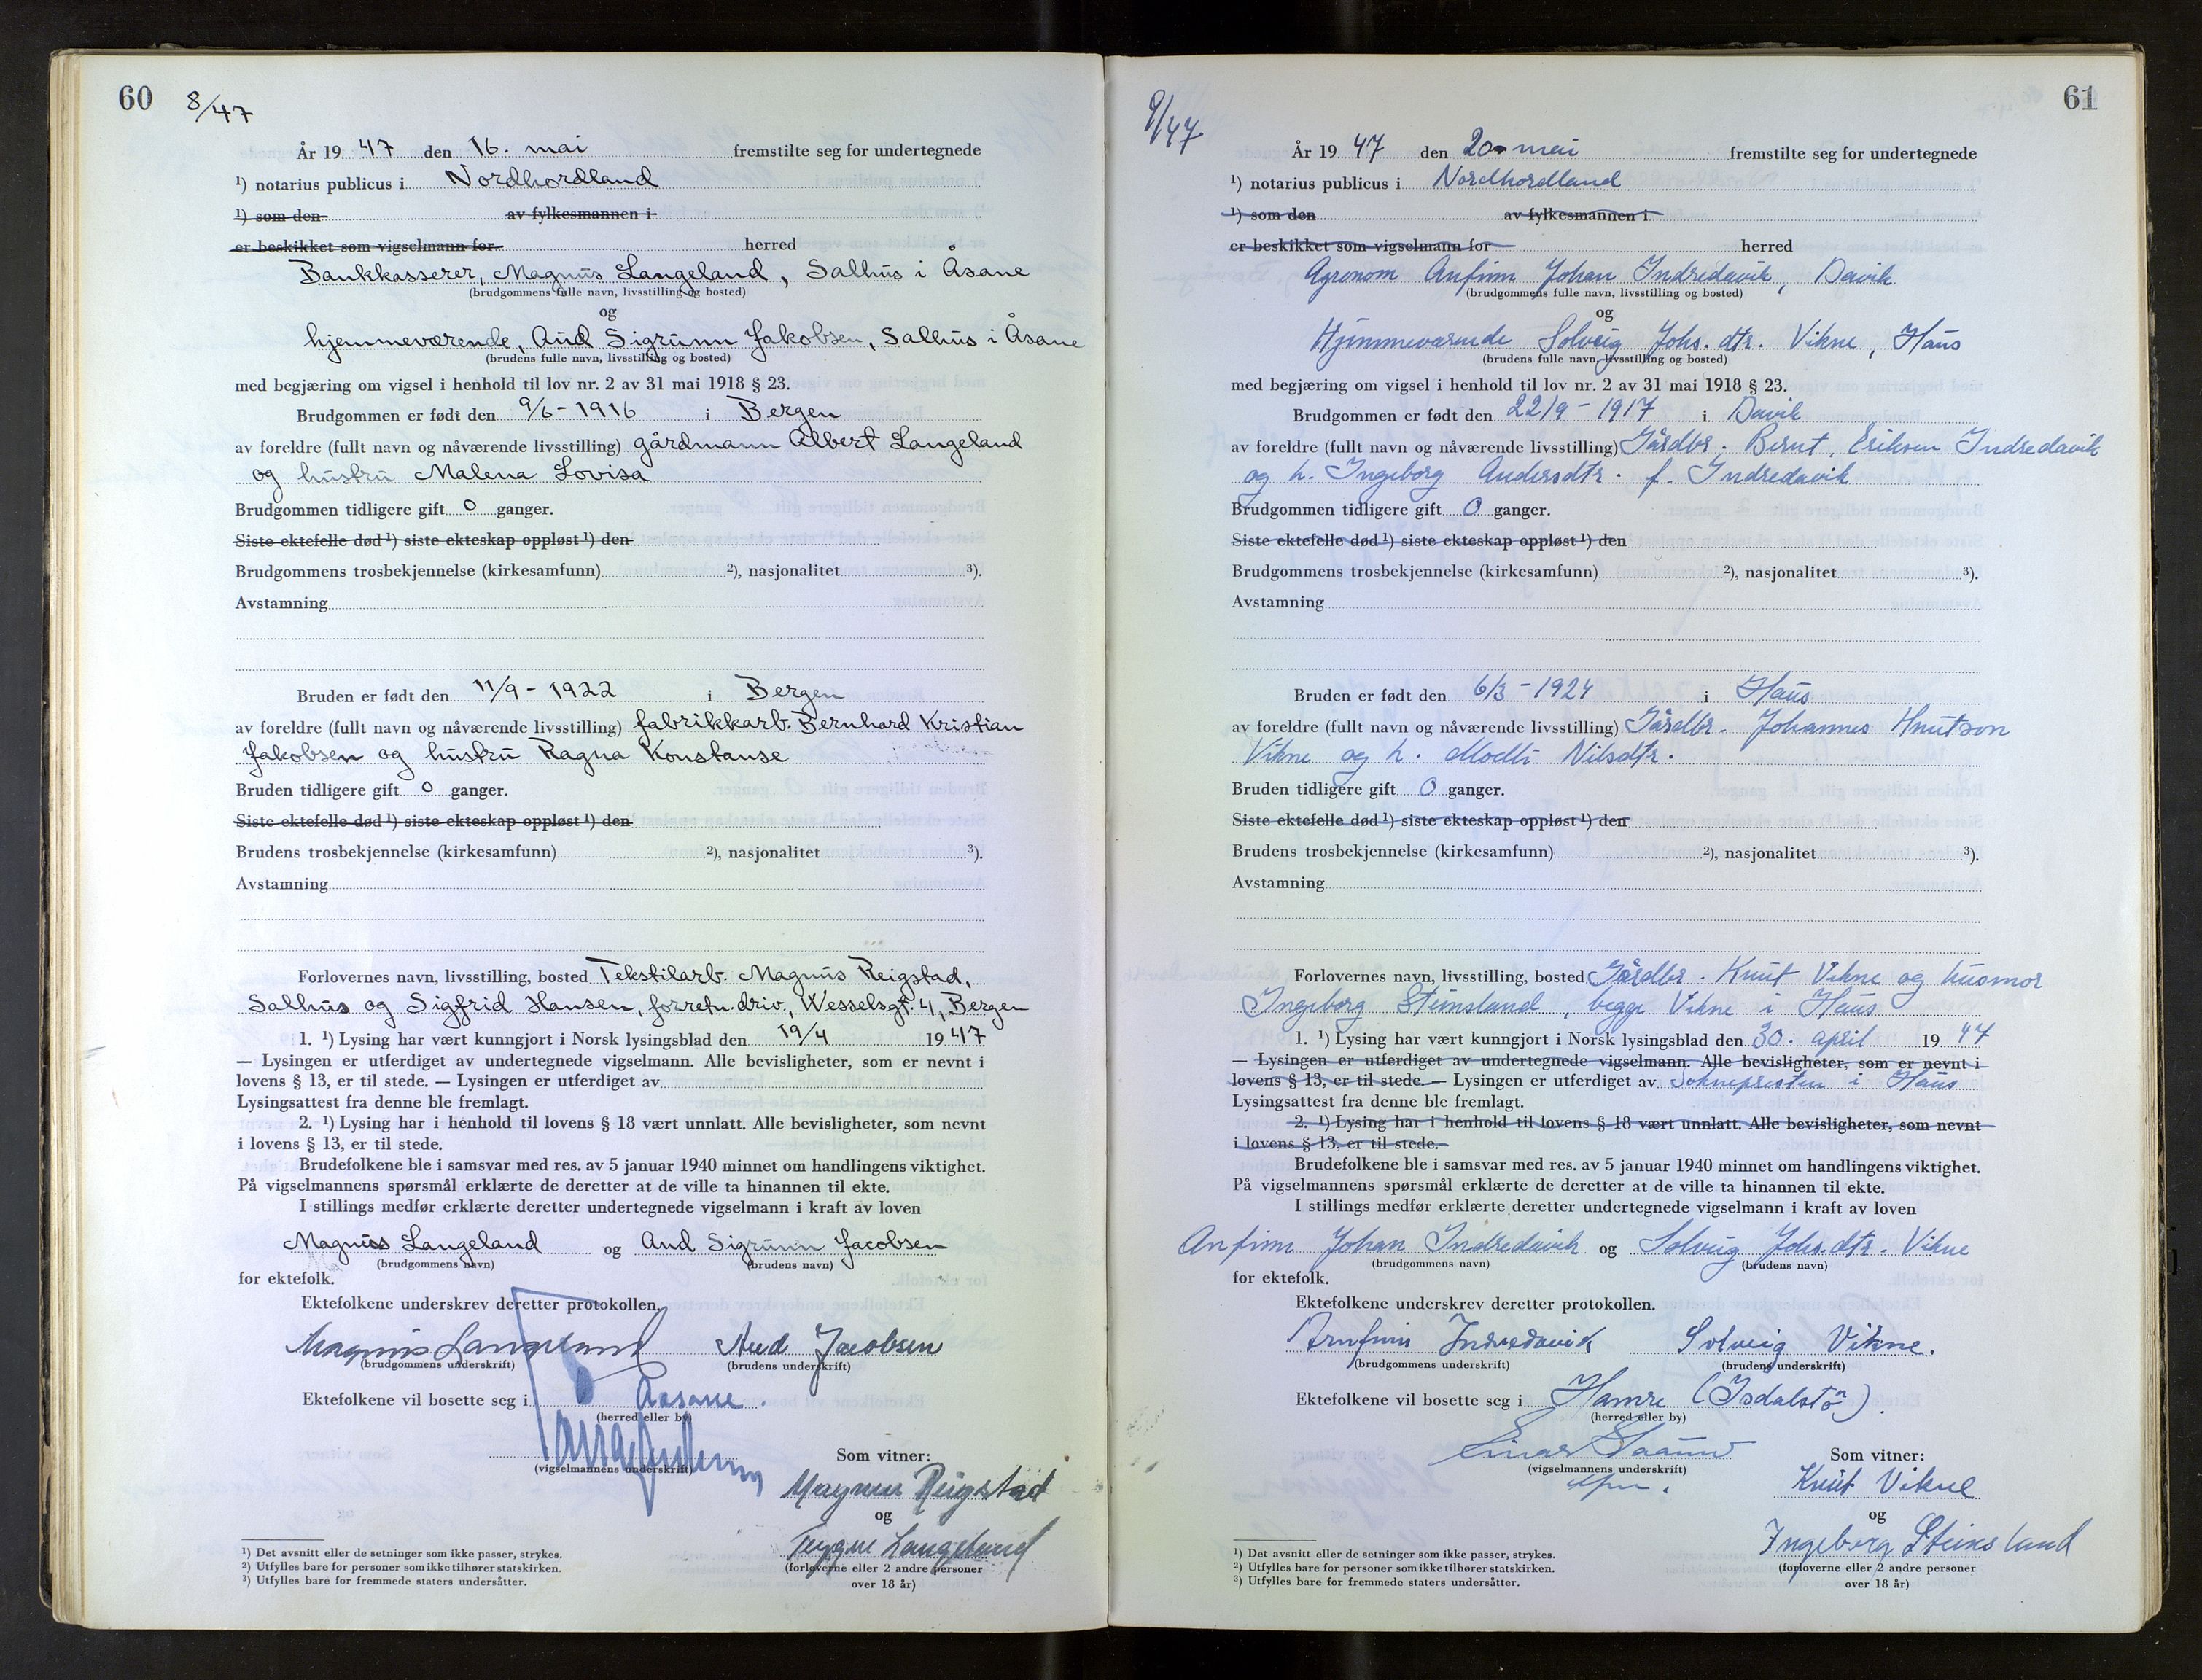 60 8/47
År 19 47 den 16. mai fremstilte seg for undertegnede
¹) notarius publicus i Nordhordland
¹) som den av fylkesmannen i
er beskikket som vigselmann for herred
Bankkasserer, Magnus Langeland, Salhus i Åsane
(brudgommens fulle navn, livsstilling og bosted)
og
hjemmeværende, Aud Sigrunn Jakobsen, Salhus i Åsane
(brudens fulle navn, livsstilling og bosted)
med begjæring om vigsel i henhold til lov nr. 2 av 31 mai 1918 § 23.
Brudgommen er født den 9/6 - 1916 i Bergen
av foreldre (fullt navn og nåværende livsstilling) gårdmann Albert Langeland
og hustru Malena Lovisa
Brudgommen tidligere gift 0 ganger.
Siste ektefelle død ¹) siste ekteskap oppløst ¹) den
Brudgommens trosbekjennelse (kirkesamfunn) ²), nasjonalitet ³).
Avstamning
Bruden er født den 11/9 - 1922 i Bergen
av foreldre (fullt navn og nåværende livsstilling) fabrikkarb. Bernhard Kristian
Jakobsen og hustru Ragna Konstanse
Bruden tidligere gift 0 ganger.
Siste ektefelle død ¹) siste ekteskap oppløst ¹) den
Brudens trosbekjennelse (kirkesamfunn) ²), nasjonalitet ³).
Avstamning
Forlovernes navn, livsstilling, bosted Tekstilarb. Magnus Reigstad,
Salhus og Sigfrid Hansen, forretn.driv., Wesselsgt. 4, Bergen
1. ¹) Lysing har vært kunngjort i Norsk lysingsblad den 19/4 19 47
— Lysingen er utferdiget av undertegnede vigselmann. Alle bevisligheter, som er nevnt i
lovens § 13, er til stede. — Lysingen er utferdiget av
Lysingsattest fra denne ble fremlagt.
2. ¹) Lysing har i henhold til lovens § 18 vært unnlatt. Alle bevisligheter, som nevnt
i lovens § 13, er til stede.
Brudefolkene ble i samsvar med res. av 5 januar 1940 minnet om handlingens viktighet.
På vigselmannens spørsmål erklærte de deretter at de ville ta hinannen til ekte.
I stillings medfør erklærte deretter undertegnede vigselmann i kraft av loven
Magnus Langeland og Aud Sigrunn Jacobsen
(brudgommens navn) (brudens navn)
for ektefolk.
Ektefolkene underskrev deretter protokollen.
Magnus Langeland Aud Jacobsen
(brudgommens underskrift) (brudens underskrift)
Ektefolkene vil bosette seg i Aasane.
(herred eller by)
(vigselmannens underskrift)
Som vitner:
Magnus Reigstad
og
Trygve Langeland
(forloverne eller 2 andre personer
over 18 år)
¹) Det avsnitt eller de setninger som ikke passer, strykes.
²) Utfylles bare for personer som ikke tilhører statskirken.
³) Utfylles bare for fremmede staters undersåtter.
9/47 61
År 19 47 den 20 mai fremstilte seg for undertegnede
¹) notarius publicus i Nordhordland
¹) som den av fylkesmannen i
er beskikket som vigselmann for herred
Agronom Anfinn Johan Indredavik, Davik
(brudgommens fulle navn, livsstilling og bosted)
og
Hjemmeværende Solveig Johs. dtr. Vikne, Haus
(brudens fulle navn, livsstilling og bosted)
med begjæring om vigsel i henhold til lov nr. 2 av 31 mai 1918 § 23.
Brudgommen er født den 22/9 - 1917 i Davik
av foreldre (fullt navn og nåværende livsstilling) Gårdbr. Bernt Eriksen Indredavik
og h. Ingeborg Andersdtr. f. Indredavik
Brudgommen tidligere gift 0 ganger.
Siste ektefelle død ¹) siste ekteskap oppløst ¹) den
Brudgommens trosbekjennelse (kirkesamfunn) ²), nasjonalitet ³).
Avstamning
Bruden er født den 6/3 - 1924 i Haus
av foreldre (fullt navn og nåværende livsstilling) Gårdbr. Johannes Knutson
Vikne og h. Molli Nilsdtr.
Bruden tidligere gift 0 ganger.
Siste ektefelle død ¹) siste ekteskap oppløst ¹) den
Brudens trosbekjennelse (kirkesamfunn) ²), nasjonalitet ³).
Avstamning
Forlovernes navn, livsstilling, bosted Gårdbr. Knut Vikne og husmor
Ingeborg Steinsland, begge Vikne i Haus
1. ¹) Lysing har vært kunngjort i Norsk lysingsblad den 30. april 19 47
— Lysingen er utferdiget av undertegnede vigselmann. Alle bevisligheter, som er nevnt i
lovens § 13, er til stede. — Lysingen er utferdiget av Soknepresten i Haus
Lysingsattest fra denne ble fremlagt.
2. ¹) Lysing har i henhold til lovens § 18 vært unnlatt. Alle bevisligheter, som nevnt
i lovens § 13, er til stede.
Brudefolkene ble i samsvar med res. av 5 januar 1940 minnet om handlingens viktighet.
På vigselmannens spørsmål erklærte de deretter at de ville ta hinannen til ekte.
I stillings medfør erklærte deretter undertegnede vigselmann i kraft av loven
Anfinn Johan Indredavik og Solveig Johs.dtr. Vikne
(brudgommens navn) (brudens navn)
for ektefolk.
Ektefolkene underskrev deretter protokollen.
Arnfinn Indredavik Solveig Vikne.
(brudgommens underskrift) (brudens underskrift)
Ektefolkene vil bosette seg i Hamre (Isdalstø).
(herred eller by)
Einar
(vigselmannens underskrift)
Som vitner:
Knut Vikne
og
Ingeborg Steinsland
(forloverne eller 2 andre personer
over 18 år)
¹) Det avsnitt eller de setninger som ikke passer, strykes.
²) Utfylles bare for personer som ikke tilhører statskirken.
³) Utfylles bare for fremmede staters undersåtter.